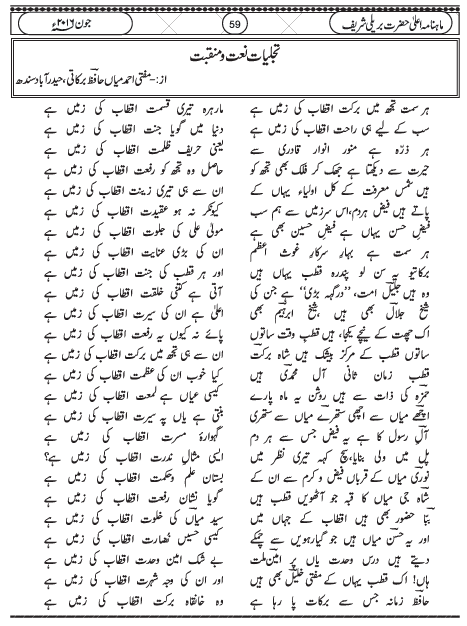 ماہنامہ اعلیٰ حضرت بریلی شریف
59
جون ۲۰۱۶ء
تجلیات نعت و منقبت
از:- مفتی احمد میاں حافظ برکاتی، حیدرآباد سندھ
ہر سمت تجھ میں برکت اقطاب کی زمیں ہے مارہرہ تیری قسمت اقطاب کی زمیں ہے
سب کے لیے ہی راحت اقطاب کی زمیں ہے دنیا میں گویا جنت اقطاب کی زمیں ہے
ہر ذرّہ ہے منور انوار قادری سے یعنی حریف ظلمت اقطاب کی زمیں ہے
حیرت سے دیکھتا ہے جھک کر فلک بھی تجھ کو حاصل وہ تجھ کو رفعت اقطاب کی زمیں ہے
ہیں شمس معرفت کے کل اولیاء یہاں کے ان سے ہی تیری زینت اقطاب کی زمیں ہے
پاتے ہیں فیض ہر دم، اس سرزمیں سے ہم سب کیونکر نہ ہو عقیدت اقطاب کی زمیں ہے
فیض حسن یہاں ہے فیض حسین بھی ہے مولیٰ علی کی جلوت اقطاب کی زمیں ہے
ہر سمت ہے بہار سرکار غوث اعظم ان کی بڑی عنایت اقطاب کی زمیں ہے
برکاتیو یہ سن لو پندرہ قطب یہاں ہیں اور ہر قطب کی جنت اقطاب کی زمیں ہے
وہ ہیں جلیل امت، "درگہہ بڑی" ہے جن کی آتی ہے کتنی خلقت اقطاب کی زمیں ہے
شیخ جلال بھی ہیں، شیخ ابرہیم بھی اعلیٰ ہے ان کی سیرت اقطاب کی زمیں ہے
اک چھت کے نیچے یکجا، ہیں قطب وقت ساتوں پائے نہ کیوں یہ رفعت اقطاب کی زمیں ہے
ساتوں قطب کے مرکز بیشک ہیں شاہ برکت ان سے ہی تجھ میں برکت اقطاب کی زمیں ہے
قطب زماں ثانی آل محمدی ہیں کیا خوب ان کی عظمت اقطاب کی زمیں ہے
حمزہ کی ذات سے ہیں روشن یہ ماہ پارے کیسی عیاں ہے لمعت اقطاب کی زمیں ہے
اچھے میاں سے اچھی ستھرے میاں سے ستھری بنتی ہے یاں پہ سیرت اقطاب کی زمیں ہے
آل رسول کا ہے یہ فیض جس سے ہر دم گہوارۂ مسرت اقطاب کی زمیں ہے
پل میں ولی بنایا، سچ کہہ تیری نظر میں ایسی مثال ندرت اقطاب کی زمیں ہے؟
نوری میاں کے قرباں فیض و کرم سے ان کے بستان علم وحکمت اقطاب کی زمیں ہے
شاہ جی میاں کا قبہ جو آٹھویں قطب ہیں گویا نشان رفعت اقطاب کی زمیں ہے
بنا حضور بھی ہیں اقطاب کے جہاں میں سید میاں کی خلوت اقطاب کی زمیں ہے
اور یہ حسن میاں ہیں جو گیارہویں سے چمکے کیسی حسیں نضارت اقطاب کی زمیں ہے
دیتے ہیں درس وحدت یاں پر امین ملت بے شک امین وحدت اقطاب کی زمیں ہے
ہاں! اک قطب یہاں کے مفتی خلیل بھی ہیں اور ان کی وجہ شہرت اقطاب کی زمیں ہے
حافظ زمانہ جس سے برکات پا رہا ہے وہ خانقاہ برکت اقطاب کی زمیں ہے